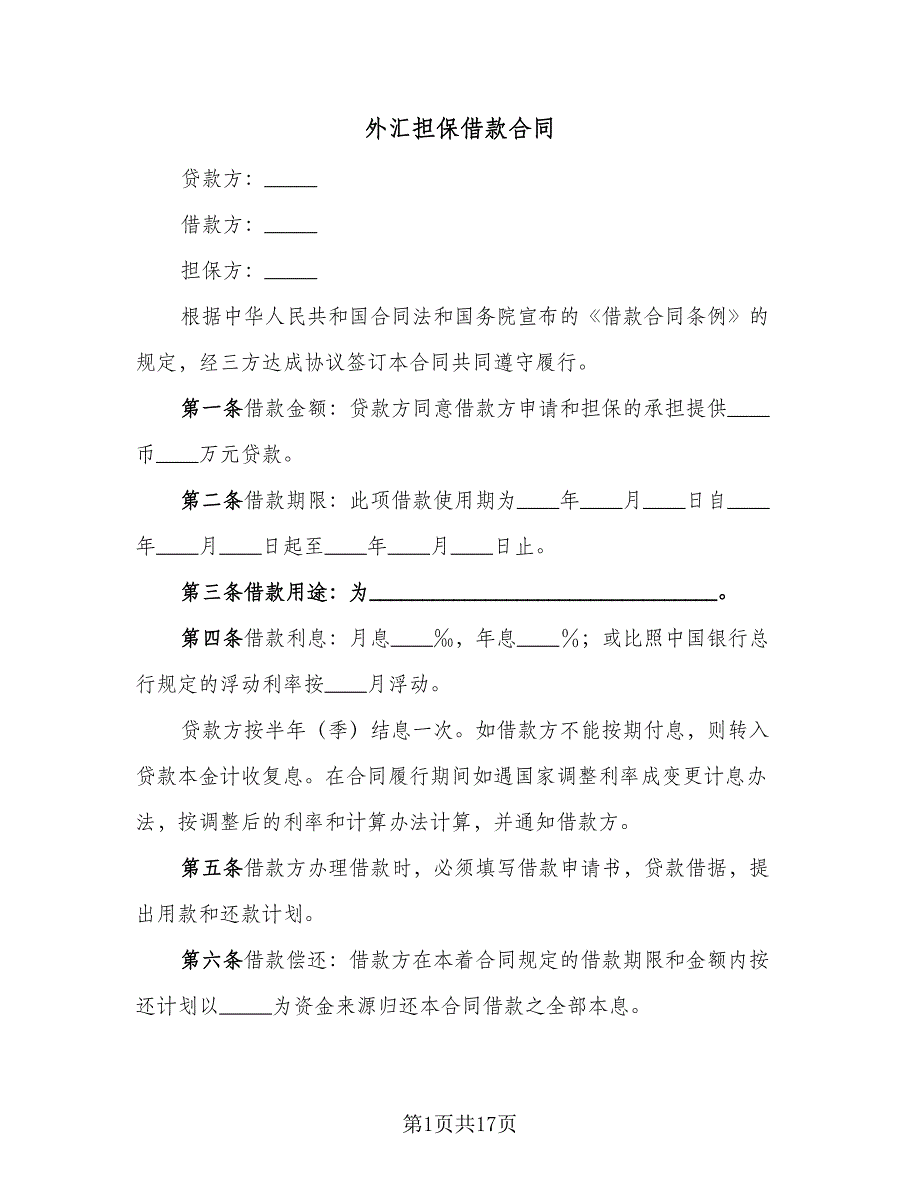 外汇担保借款合同
贷款方：_____
借款方：_____
担保方：_____
根据中华人民共和国合同法和国务院宣布的《借款合同条例》的
规定，经三方达成协议签订本合同共同遵守履行。
第一条借款金额：贷款方同意借款方申请和担保的承担提供____
币____万元贷款。
第二条借款期限：此项借款使用期为____年____月____日自____
年____月____日起至____年____月____日止。
第三条借款用途：为_________________________________。
第四条借款利息：月息____‰，年息____％；或比照中国银行总
行规定的浮动利率按____月浮动。
贷款方按半年（季）结息一次。如借款方不能按期付息，则转入
贷款本金计收复息。在合同履行期间如遇国家调整利率成变更计息办
法，按调整后的利率和计算办法计算，并通知借款方。
第五条借款方办理借款时，必须填写借款申请书，贷款借据，提
出用款和还款计划。
第六条借款偿还：借款方在本着合同规定的借款期限和金额内按
还计划以_____为资金来源归还本合同借款之全部本息。
第1页共17页